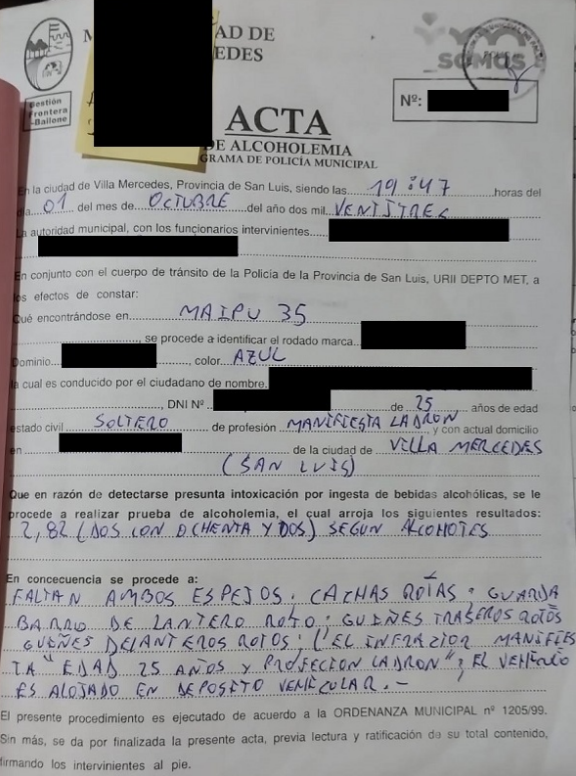 AD DE
EDES
SOMOS
Gestión
Frontera
-Bailone
Nº:
ACTA
DE ALCOHOLEMIA
GRAMA DE POLICÍA MUNICIPAL
En la ciudad de Villa Mercedes, Provincia de San Luis, siendo las 19:47 horas del
día 01 del mes de OCTUBRE del año dos mil VENTITRES
La autoridad municipal, con los funcionarios intervinientes
En conjunto con el cuerpo de tránsito de la Policía de la Provincia de San Luis, URII DEPTO MET, a
los efectos de constar:
Qué encontrándose en MAIPU 35
, se procede a identificar el rodado marca
Dominio , color AZUL
la cual es conducido por el ciudadano de nombre
, DNI Nº de 25 años de edad
estado civil SOLTERO de profesión MANIFIESTA LADRON y con actual domicilio
en de la ciudad de VILLA MERCEDES
(SAN LUIS)
Que en razón de detectarse presunta intoxicación por ingesta de bebidas alcohólicas, se le
procede a realizar prueba de alcoholemia, el cual arroja los siguientes resultados:
2,82 (DOS CON OCHENTA Y DOS) SEGUN ALCOHOTES
En concecuencia se procede a:
FALTAN AMBOS ESPEJOS. CACHAS ROTAS. GUARDA
BARRO DELANTERO ROTO. GUIÑES TRASEROS ROTOS
GUIÑES DELANTEROS ROTOS. EL INFRAZTOR MANIFIES
TA "EDAD 25 AÑOS Y PROFECION LADRON"; EL VEHICULO
ES ALOJADO EN DEPOSITO VEHICULAR.-
El presente procedimiento es ejecutado de acuerdo a la ORDENANZA MUNICIPAL nº 1205/99.
Sin más, se da por finalizada la presente acta, previa lectura y ratificación de su total contenido,
firmando los intervinientes al pie.